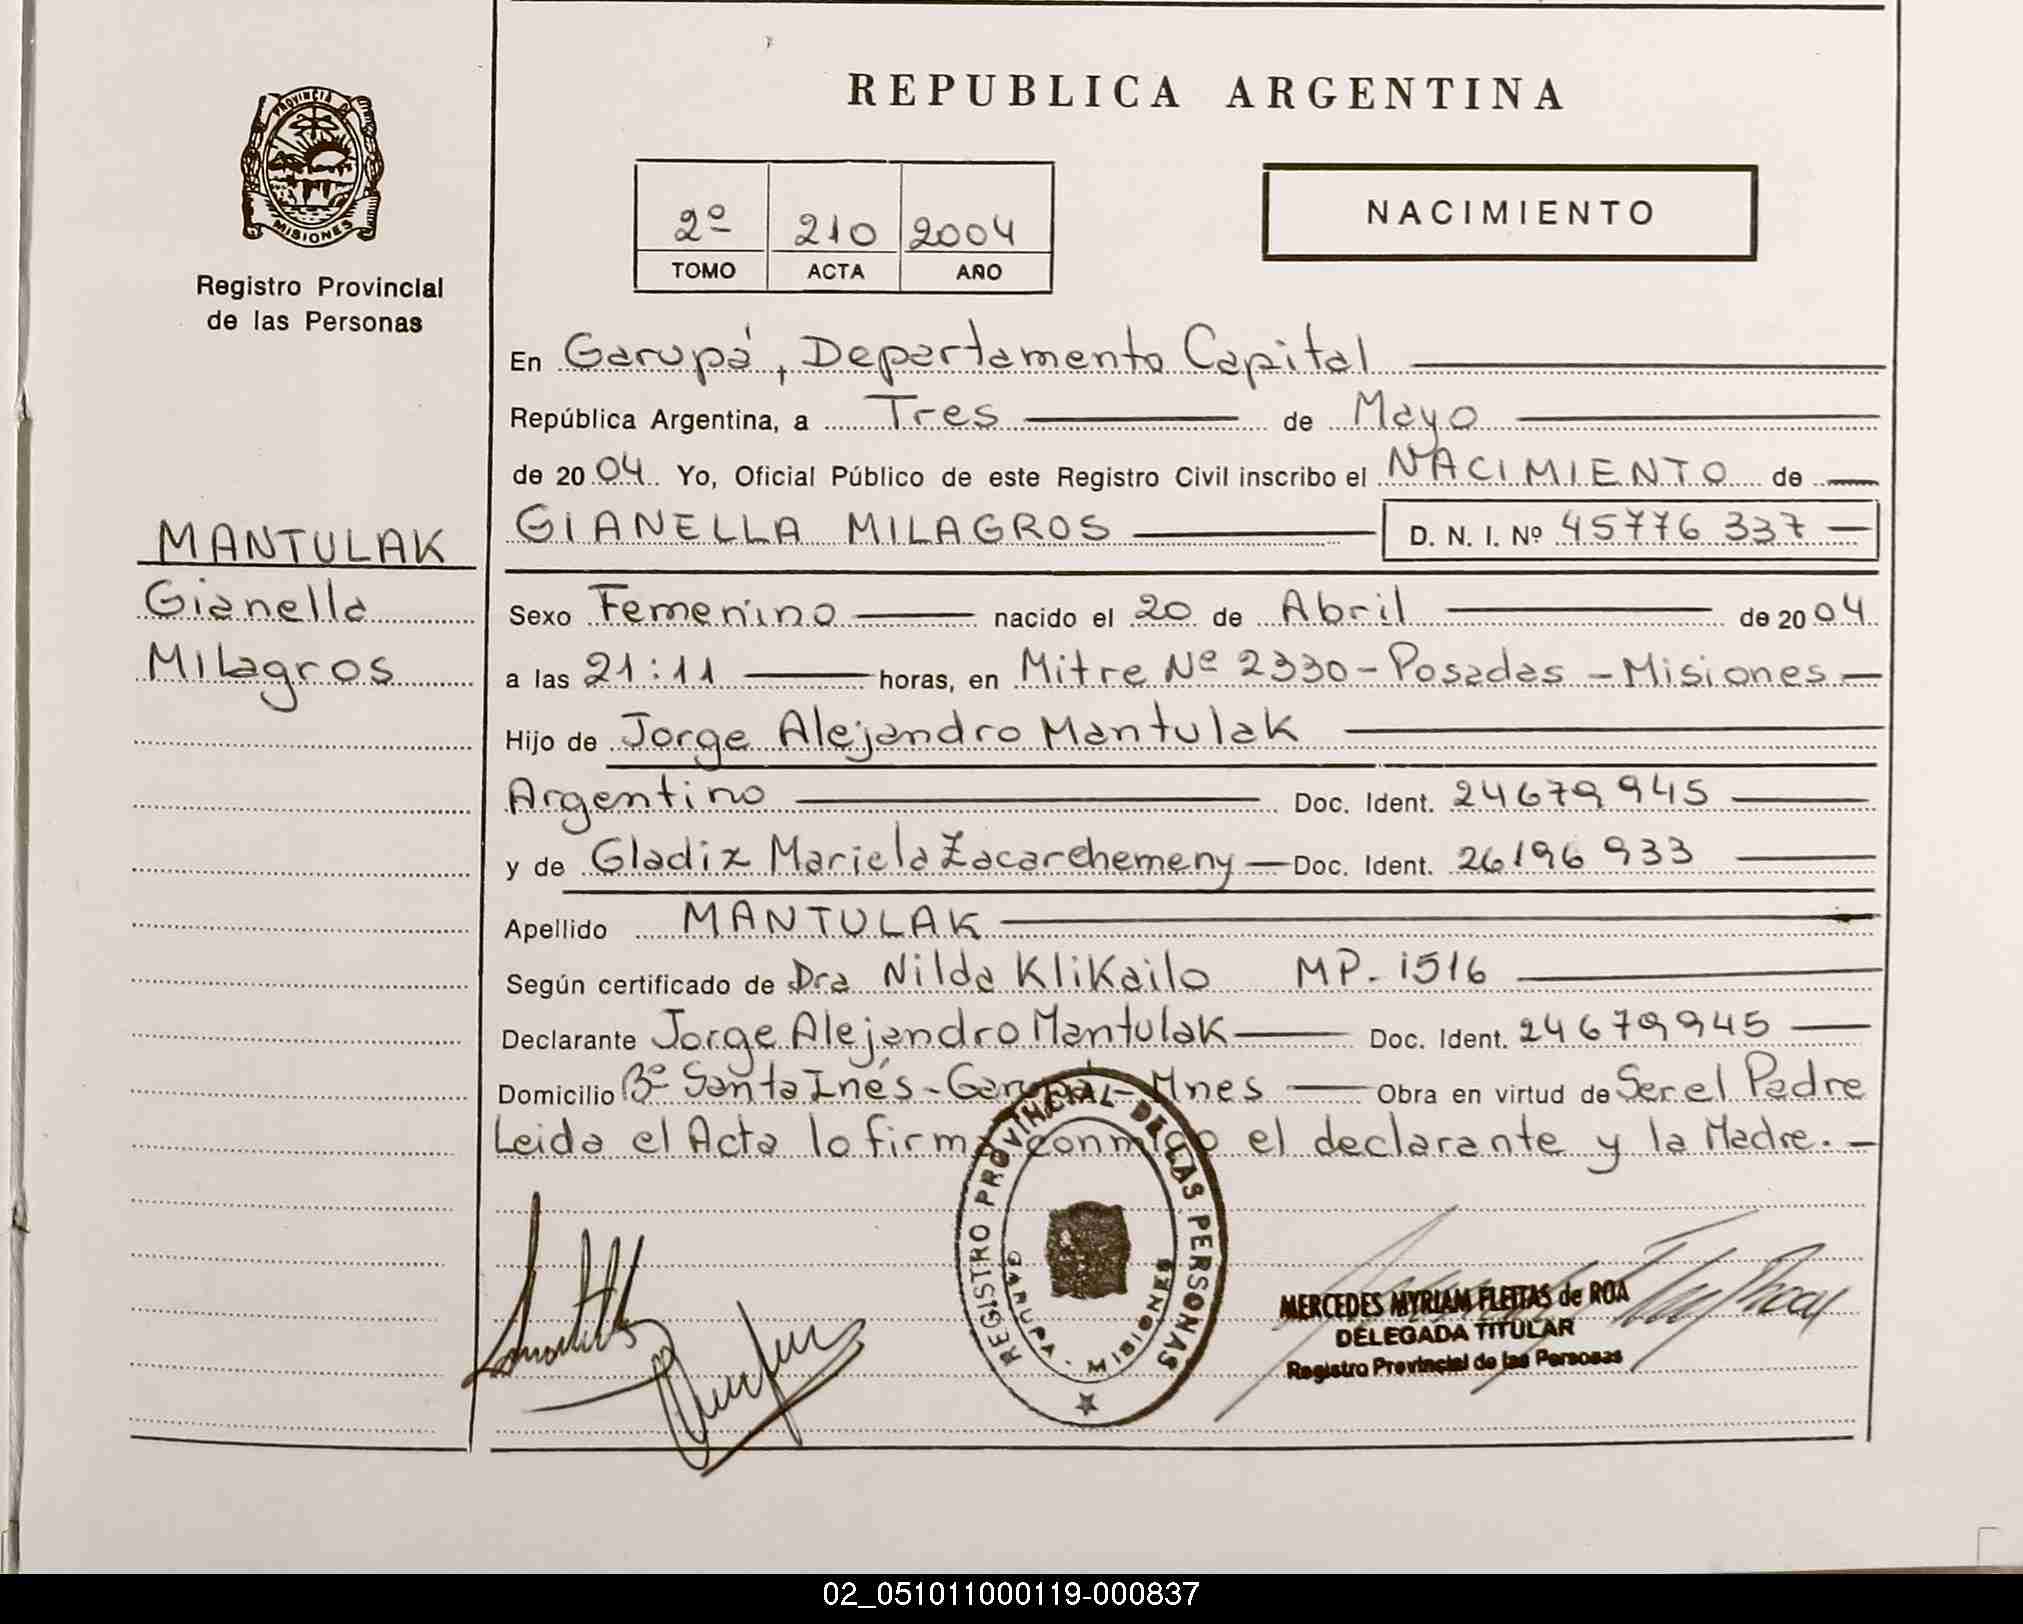 REPUBLICA ARGENTINA
PROVINCIA DE
MISIONES
Registro Provincial
de las Personas
2º 210 2004
TOMO ACTA AÑO
NACIMIENTO
MANTULAK
Gianella
Milagros
En Garupá, Departamento Capital
República Argentina, a Tres de Mayo
de 2004. Yo, Oficial Público de este Registro Civil inscribo el NACIMIENTO de
GIANELLA MILAGROS D. N. I. Nº 45776 337
Sexo Femenino nacido el 20 de Abril de 2004
a las 21:11 horas, en Mitre Nº 2330 - Posadas - Misiones
Hijo de Jorge Alejandro Mantulak
Argentino Doc. Ident. 24679945
y de Gladiz Mariela Zacarchemeny Doc. Ident. 26196 933
Apellido MANTULAK
Según certificado de Dra Nilda Klikailo MP. 1516
Declarante Jorge Alejandro Mantulak Doc. Ident. 24679945
Domicilio Bº Santa Inés - Garupá - Mnes Obra en virtud de Ser el Padre
Leida el Acta lo firma conmigo el declarante y la Madre.
REGISTRO PROVINCIAL DE LAS PERSONAS
GARUPA - MISIONES
MERCEDES MYRIAM FLEITAS de ROA
DELEGADA TITULAR
Registro Provincial de las Personas
02_051011000119-000837